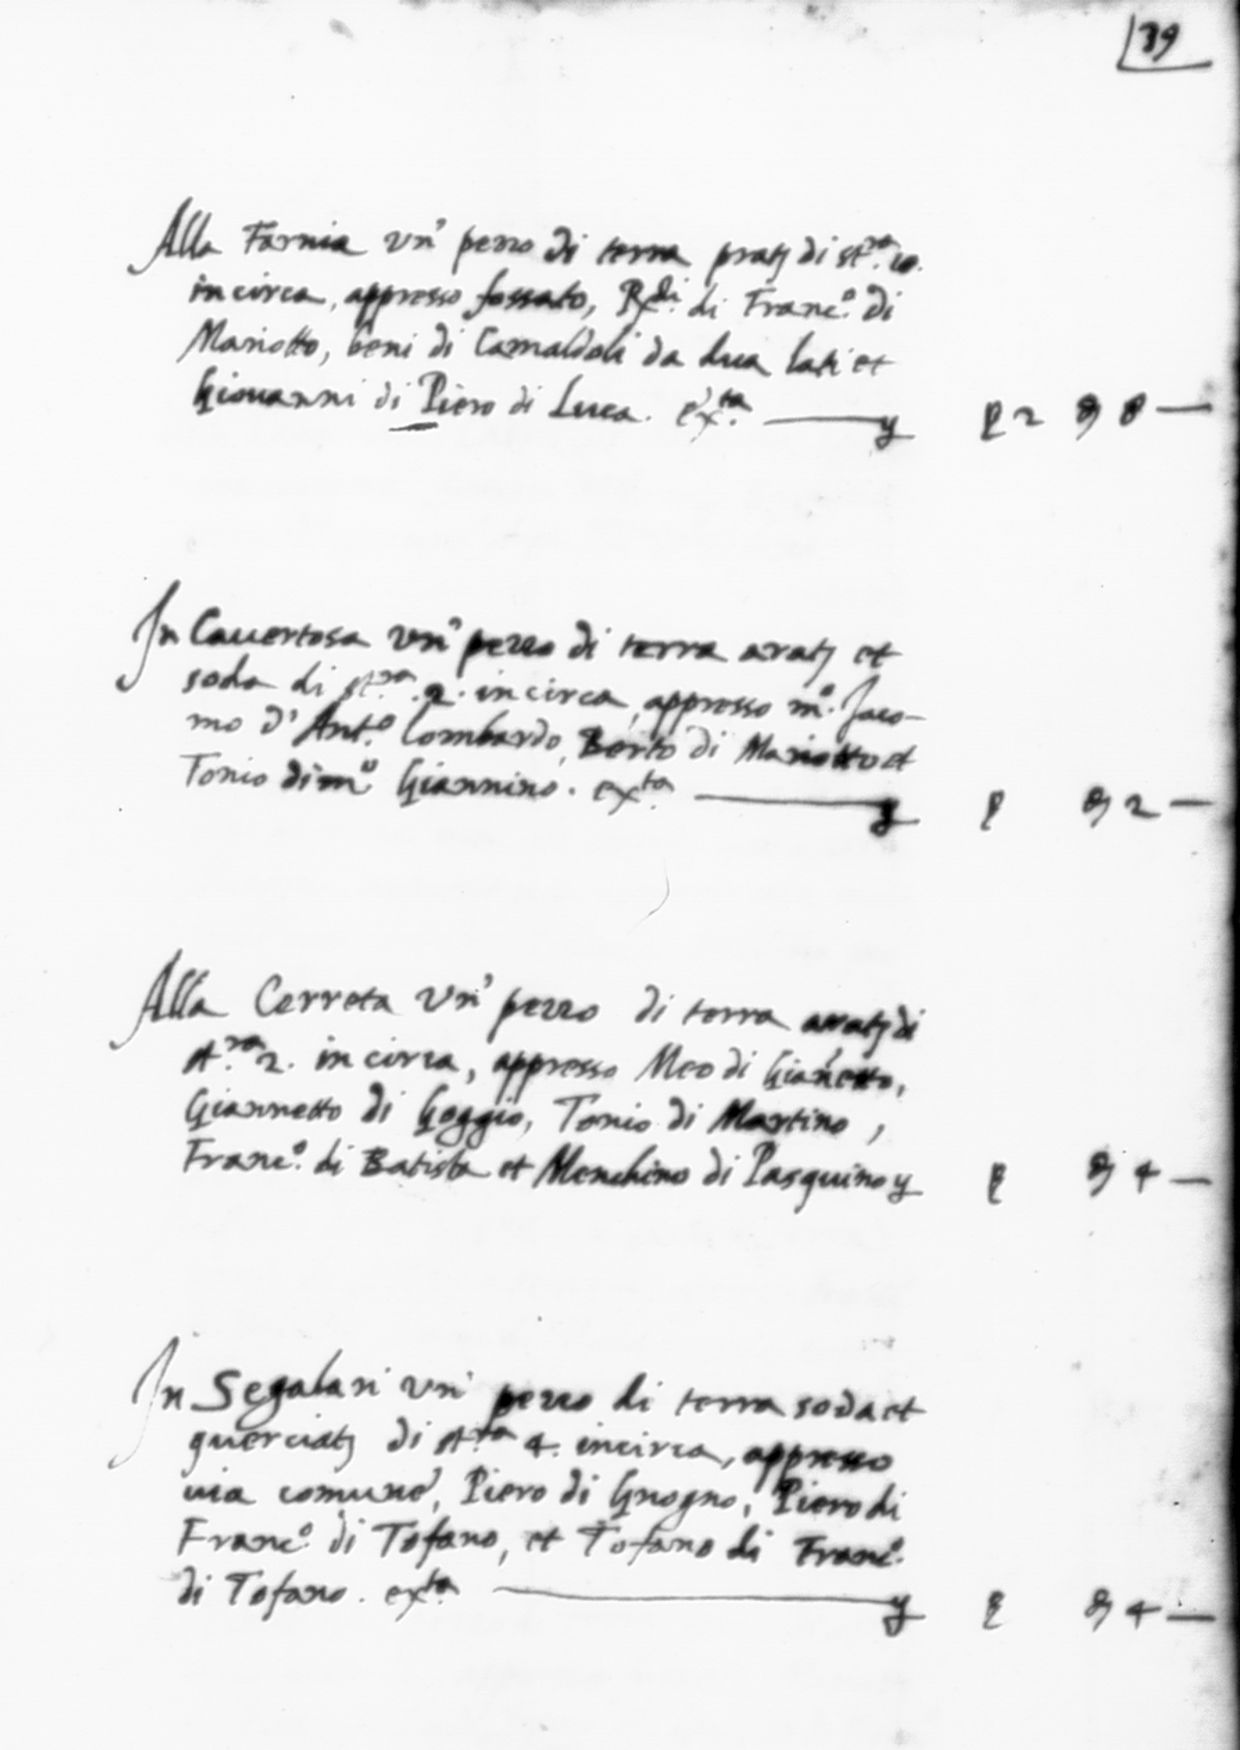 39
Alla Farnia un' pezzo di terra prat. di st.ra 10.
in circa, appresso fossato, Rdi. di Franc.o di
Mariotto, beni di Camaldoli da dua lati et
Giovanni di Piero di Luca. ex.ta 2 8 —
In Cavertosa un' pezzo di terra arat. et
soda di st.ra 2. in circa, appresso m.o Jaco-
mo d' Ant.o Lombardo, Berto di Mariotto et
Tonio di m.o Giannino. ex.ta 2 —
Alla Cerreta un' pezzo di terra arrat. di
st.ra 2. in circa, appresso Meo di Gianetto,
Giannetto di Goggio, Tonio di Martino,
Franc.o di Batista et Menchino di Pasquino 4 —
In Segalari un' pezzo di terra soda et
querciat. di st.ra 4. incirca, appresso
via comune, Piero di Gnogno, Piero di
Franc.o di Tofano, et Tofano di Franc.o
di Tofano. ex.ta 4 —